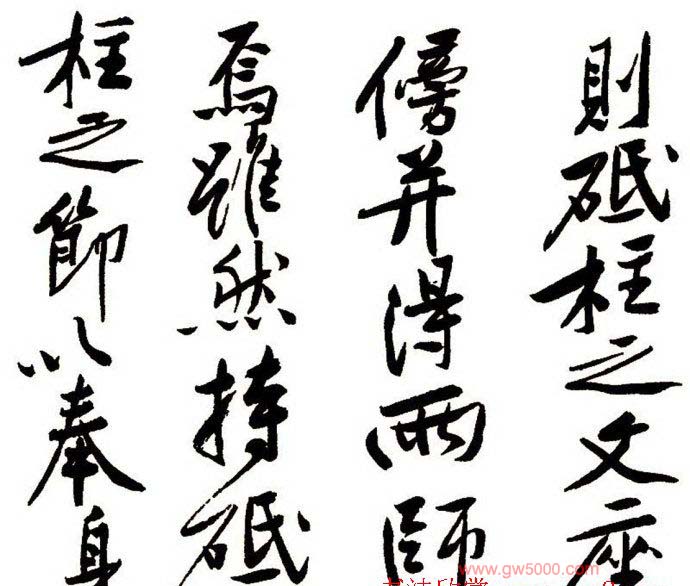 則砥柱之文座
傍并得兩師
焉雖然持砥
柱之節以奉身
www.gw5000.com